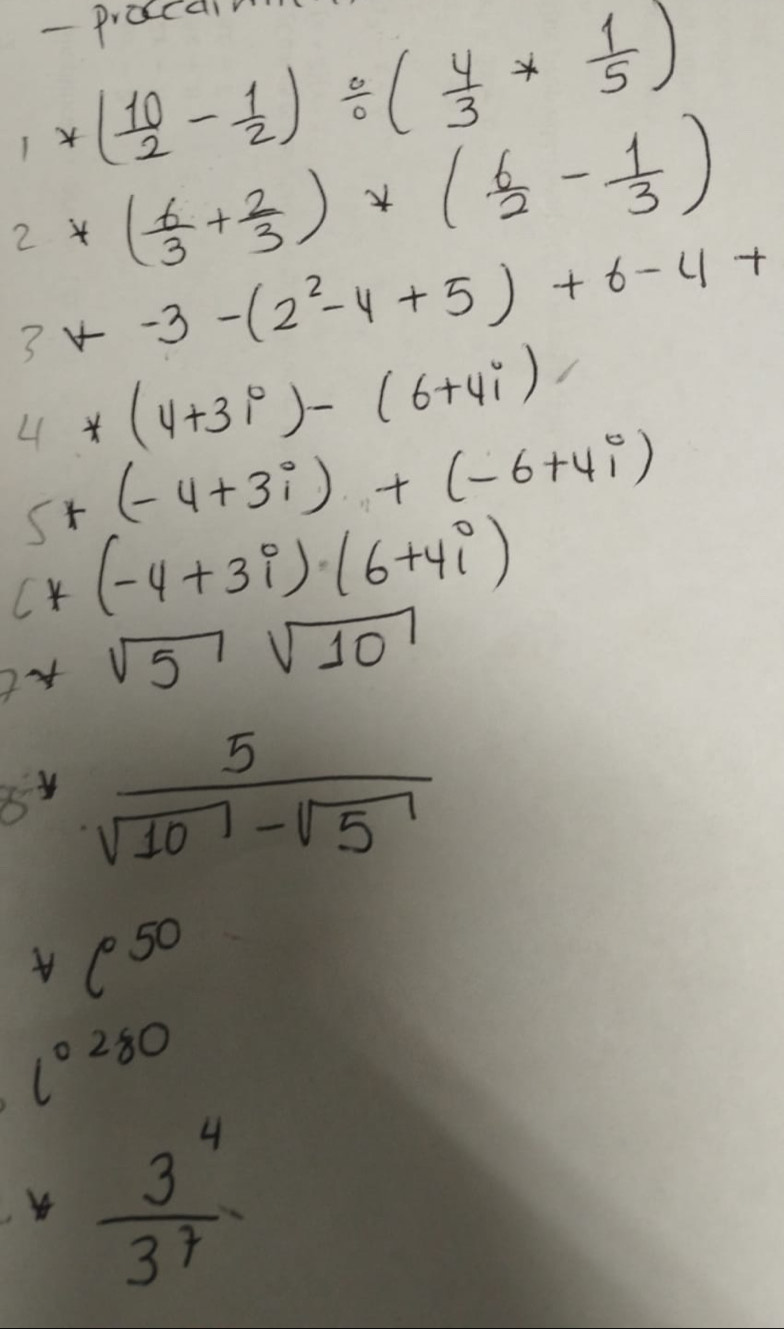 1 * (10/2 - 1/2) ÷ (4/3 * 1/5)
2 * (6/3 + 2/3) * (6/2 - 1/3)
3 * -3 - (2² - 4 + 5) + 6 - 4 +
4 * (4+3i) - (6+4i)
5 * (-4+3i) + (-6+4i)
6 * (-4+3i)·(6+4i)
7 * √5 √10
8 * 5/(√10 - √5)
* i⁵⁰
i²⁸⁰
* 3⁴/3⁷